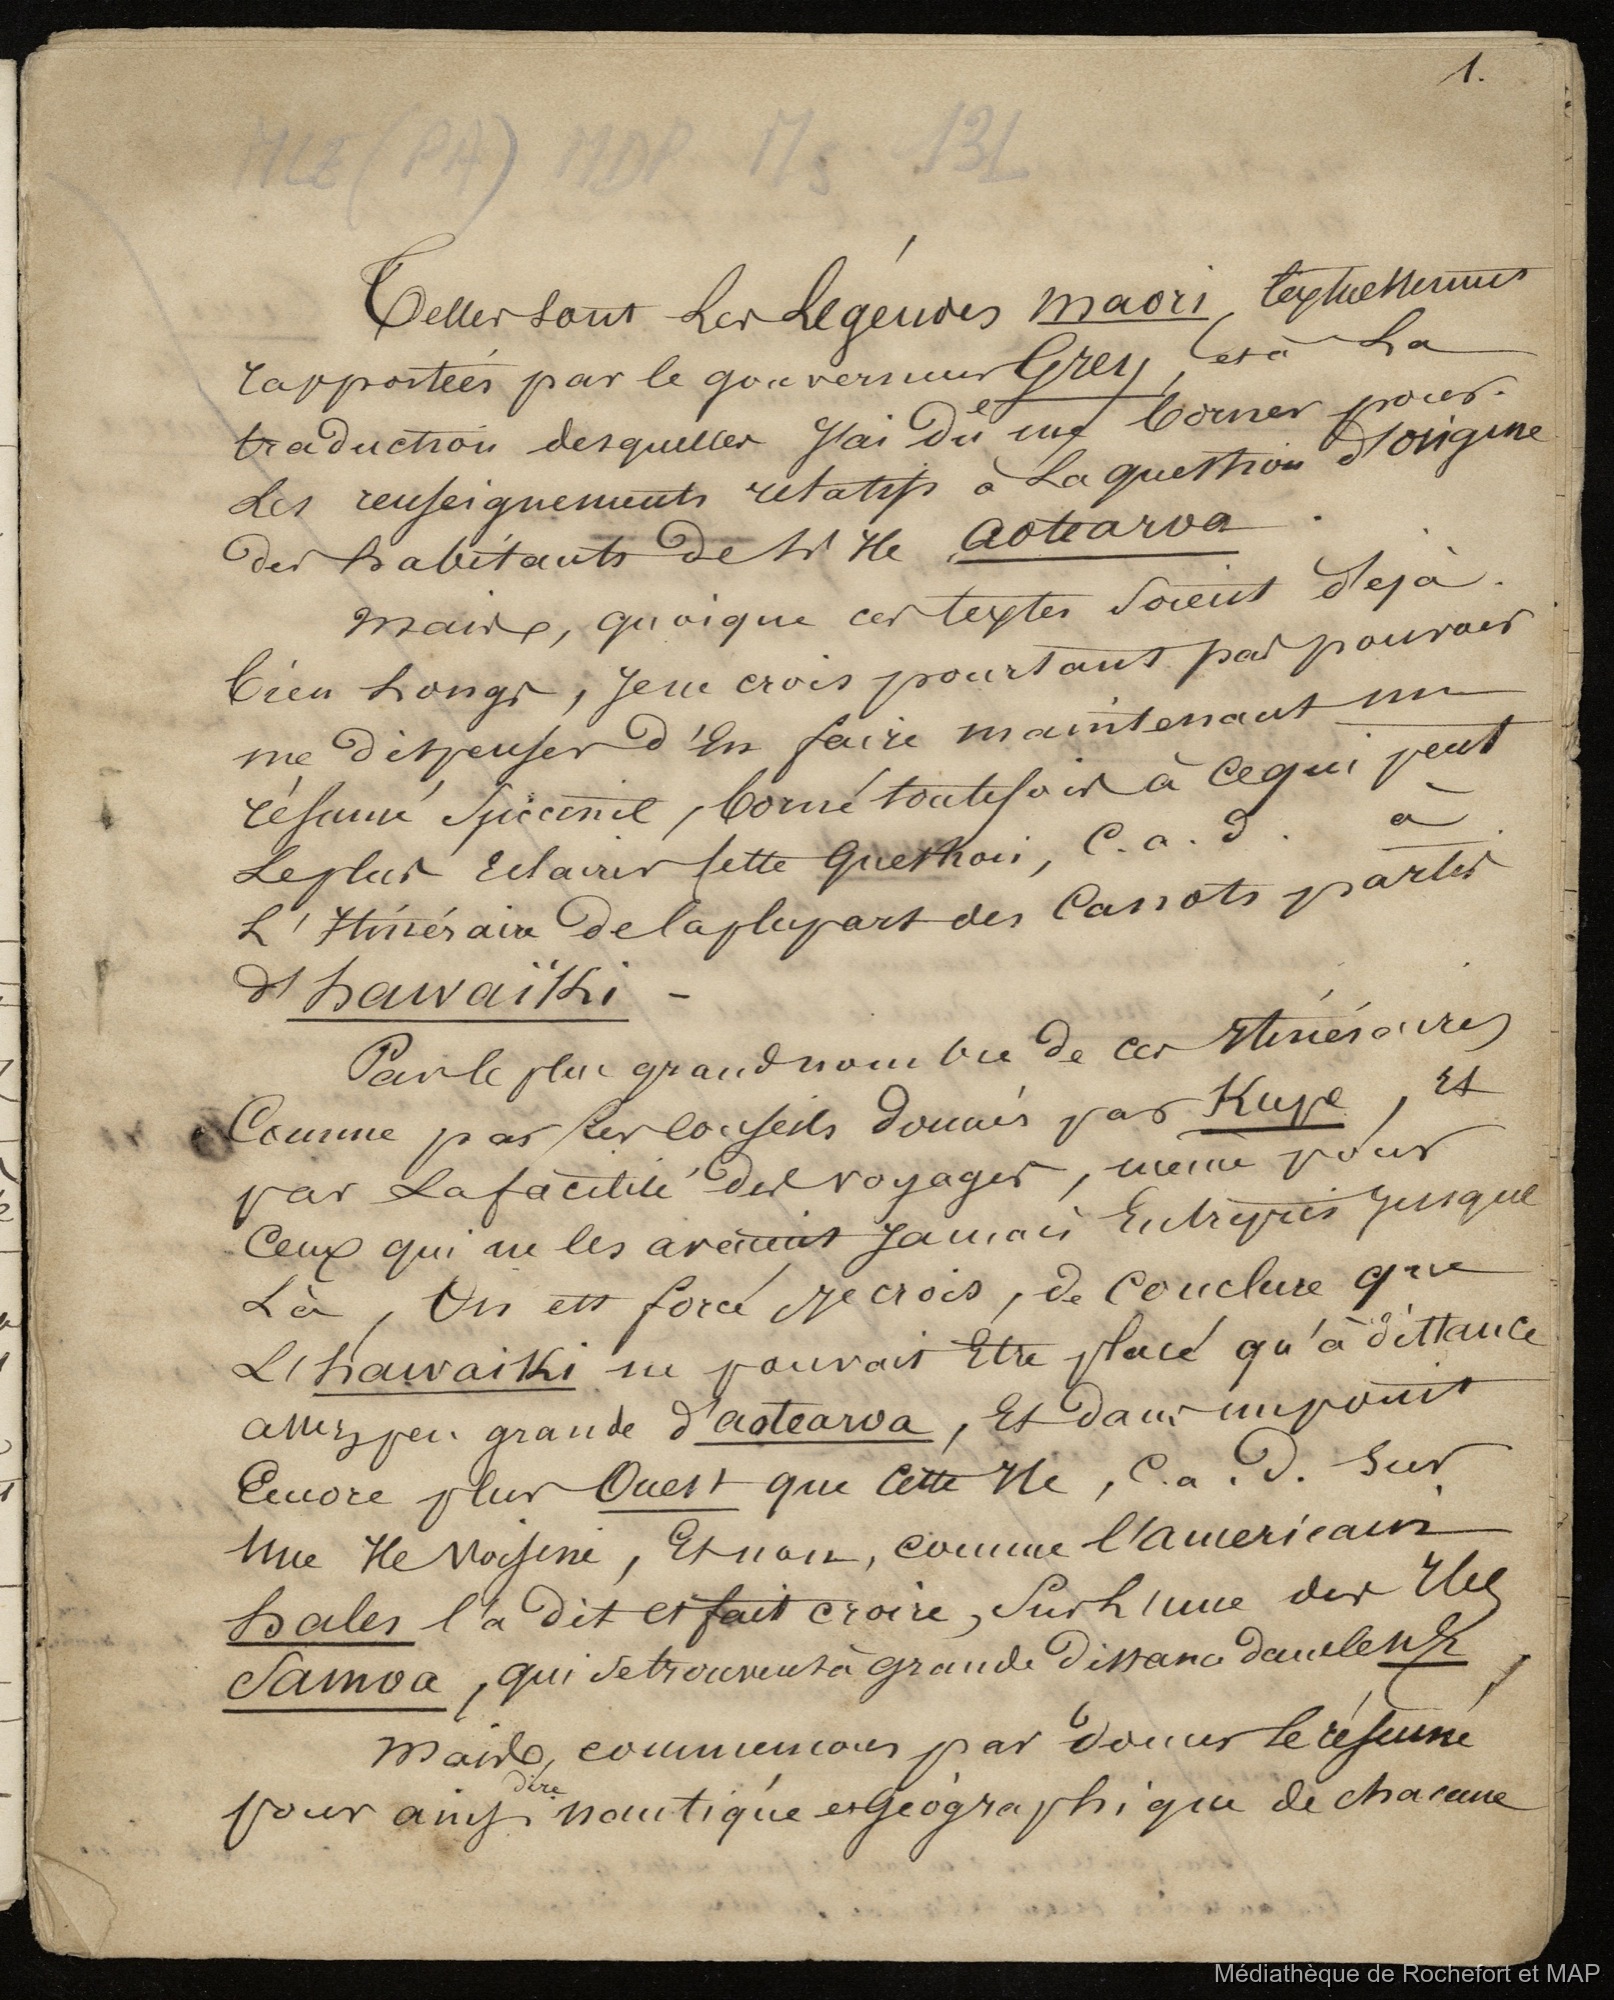 1.
MLE (PA) MDP Ms 131
Telles sont les Légendes maori, textuellement
rapportées par le gouverneur Grey, et à la
traduction desquelles J'ai dû me borner pour
les renseignements relatifs à la question d'origine
des habitants de l'Ile aotearoa.
Mais, quoique ces textes soient déjà
bien longs, Je ne crois pourtant pas pouvoir
me dispenser d'En faire maintenant un
résumé succinct, borné toutefois à ce qui peut
le plus Eclairer cette question, C. a. d. à
L'Itinéraire de la plupart des Canots partis
d'hawaïki -
Par le plus grand nombre de ces Itinéraires
Comme par les conseils donnés par Kupe, Et
par la facilité des voyages, même pour
Ceux qui ne les avaient Jamais Entrepris Jusque
Là, On est forcé, Je crois, de Conclure que
L'hawaiki ne pouvait Etre placé qu'à distance
assez peu grande d'aotearoa, Et dans un point
Encore plus Ouest que cette Ile, C. a. d. Sur
Une Ile Voisine, Et non, comme l'americain
hales l'a dit et fait croire, Sur L'une des Iles
Samoa, qui se trouvent à grande distance dans le
Mais, commencons par donner le résumé
pour ainsi dire nautique et géographique de chacune
Médiathèque de Rochefort et MAP